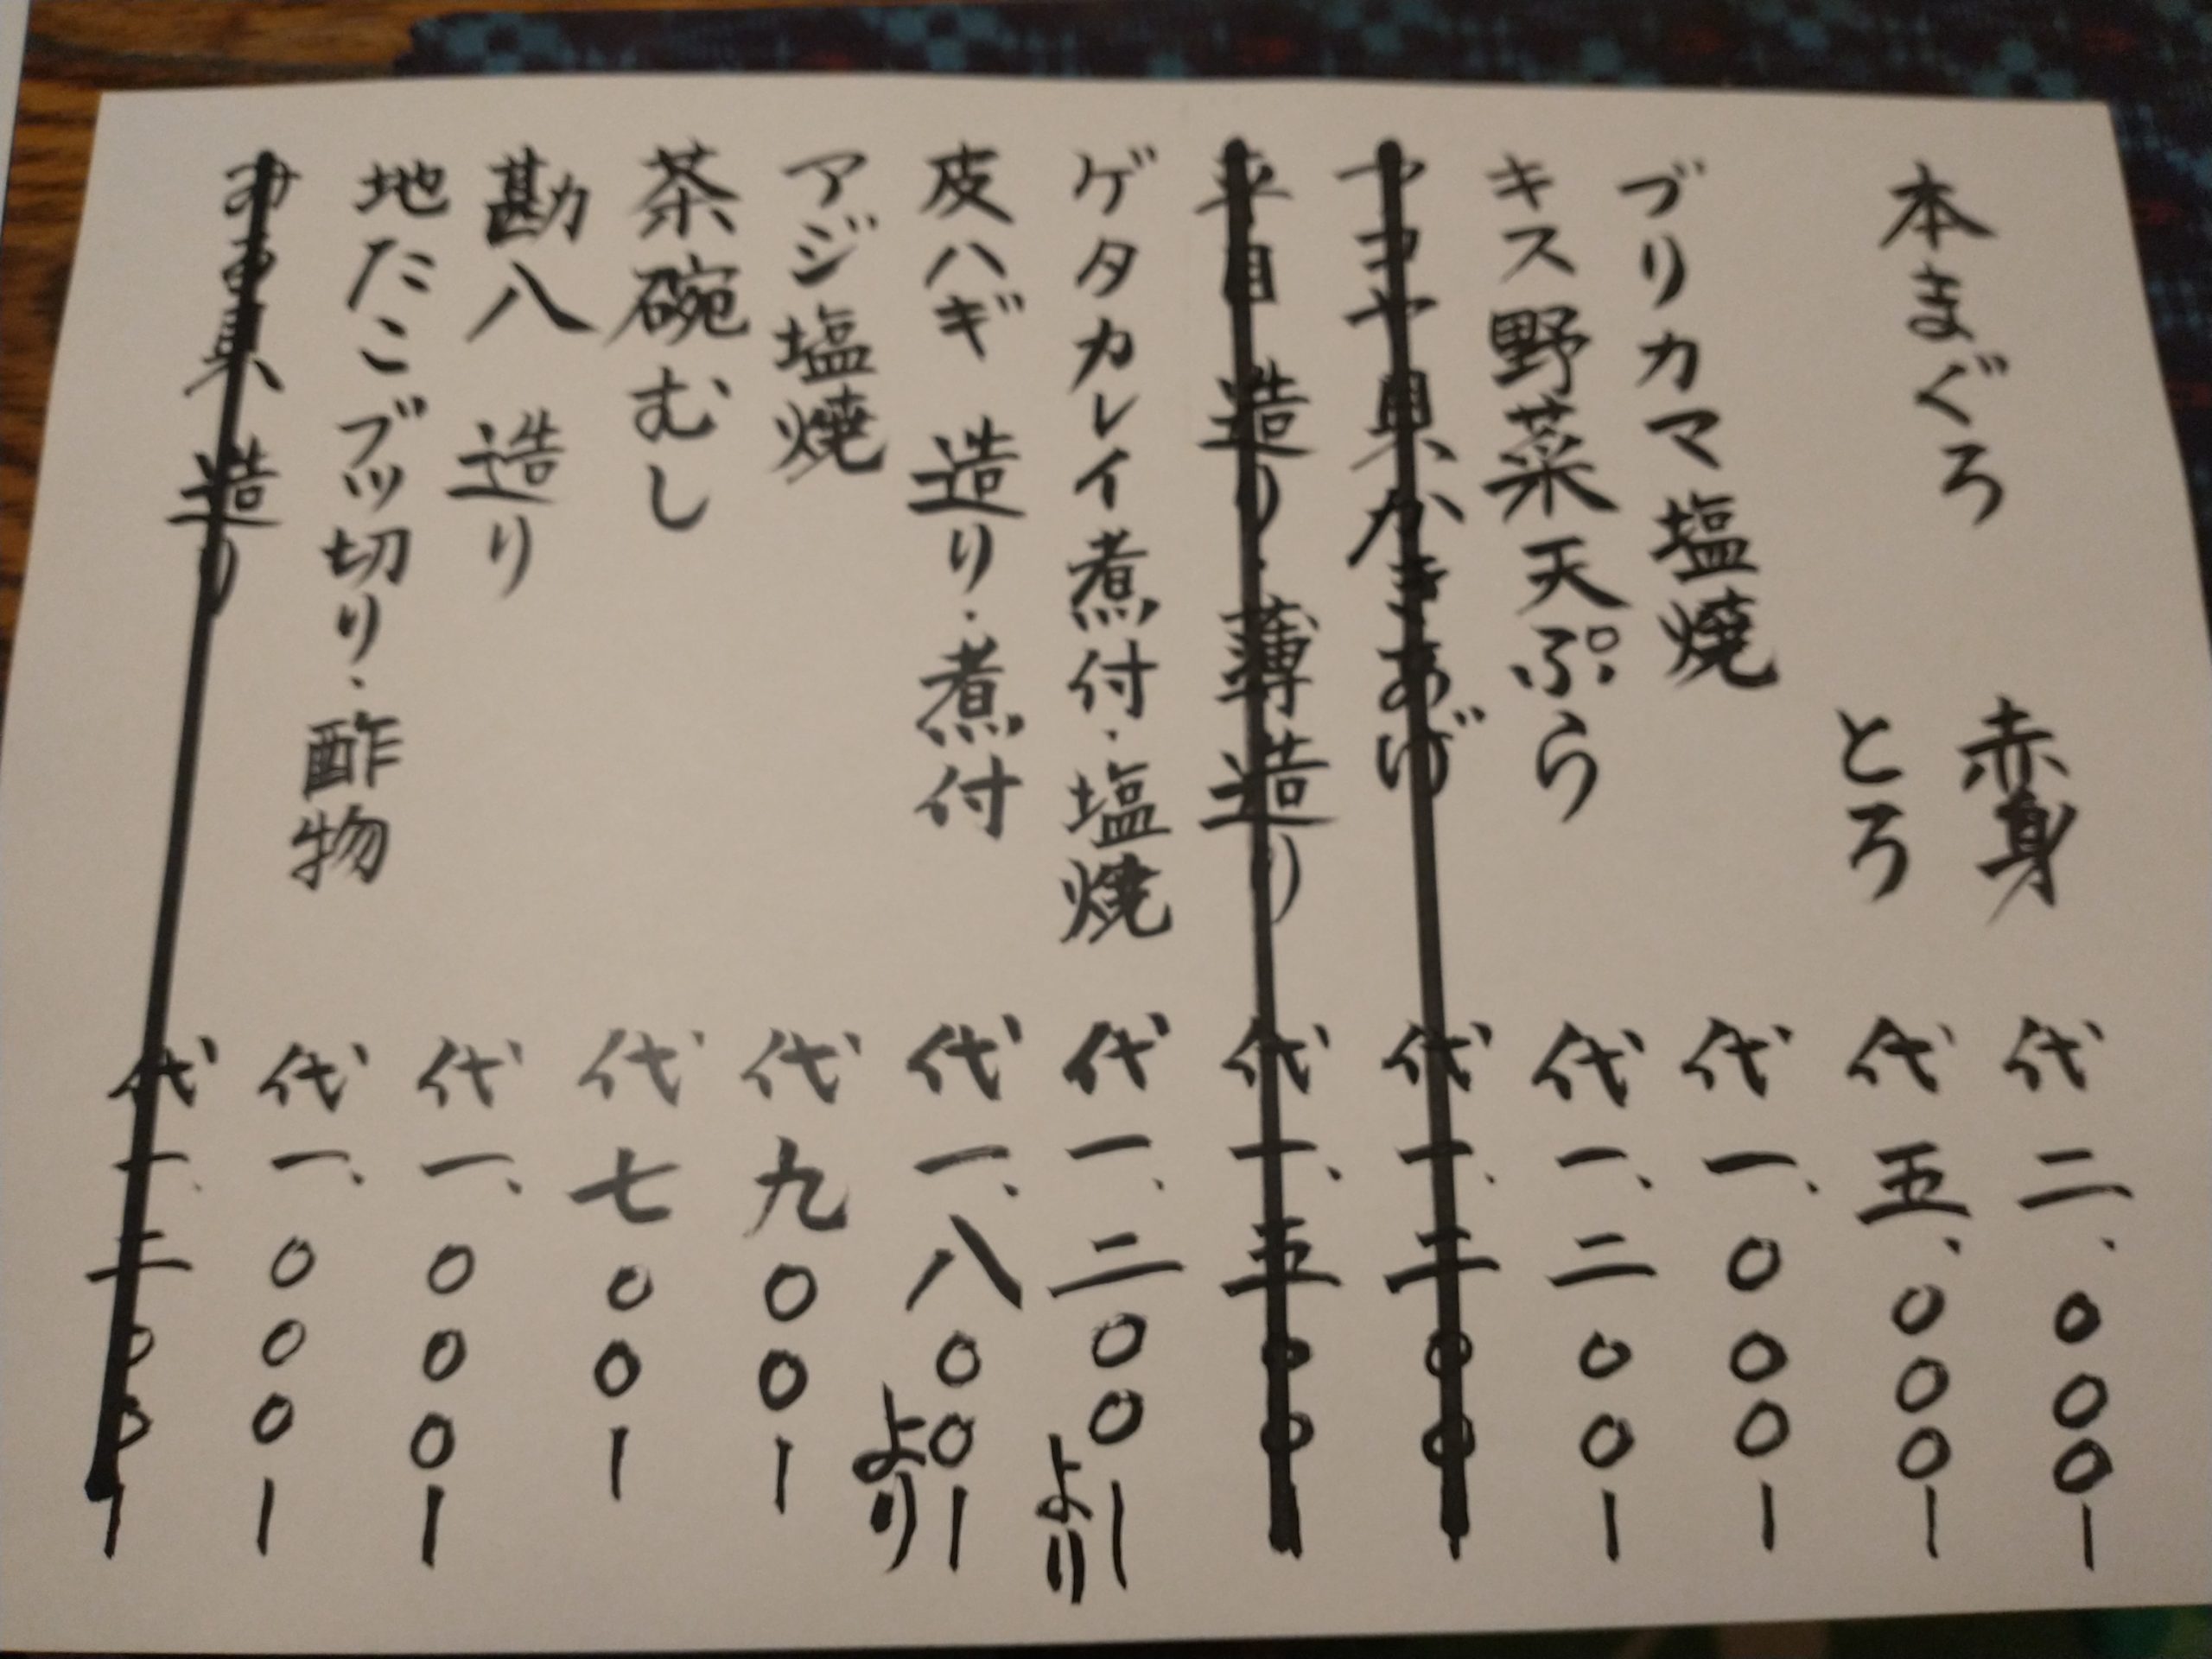 本まぐろ 赤身 代二、〇〇〇ー
とろ 代五、〇〇〇ー
ブリカマ塩焼 代一、〇〇〇ー
キス野菜天ぷら 代一、二〇〇ー
貝かきあげ 代一、二〇〇ー
平目 造り・薄造り 代一、五〇〇ー
ゲタカレイ煮付・塩焼 代一、二〇〇ーより
皮ハギ 造り・煮付 代一、八〇〇ーより
アジ塩焼 代九〇〇ー
茶碗むし 代七〇〇ー
勘八 造り 代一、〇〇〇ー
地たこブツ切り・酢物 代一、〇〇〇ー
みる貝 造り 代一、二〇〇ー